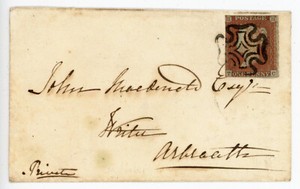 POSTAGE
John Macdonald Esqr.
Writer
Arbroath
Private